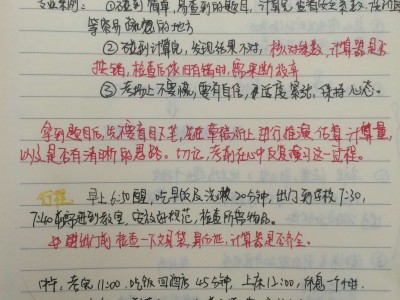 专业案例：①碰到简单、易查到的题目，计算完，查看校正系数
等容易疏忽的地方
②碰到计算完，发现结果不对，核对倍数，计算器是否
按错，检查后依旧有错时，需果断放弃
③考场上不要慌，要有自信，适度紧张，保持心态。
拿到题目后，先不要盲目下笔，先在草稿纸上进行推演、估算计算量，
以及是否有清晰的思路。切记，考前在心中反复演习这一过程。
行程：早上6:50醒，吃早饭及洗漱20分钟，出门到学校7:30，
7:40前进到教室，安放好规范，检查所带物品。
出门前，检查一下文具袋，身份证，计算器是否齐全。
中午：考完11:00，吃饭回酒店45分钟，上床12:00，休息一个小时.